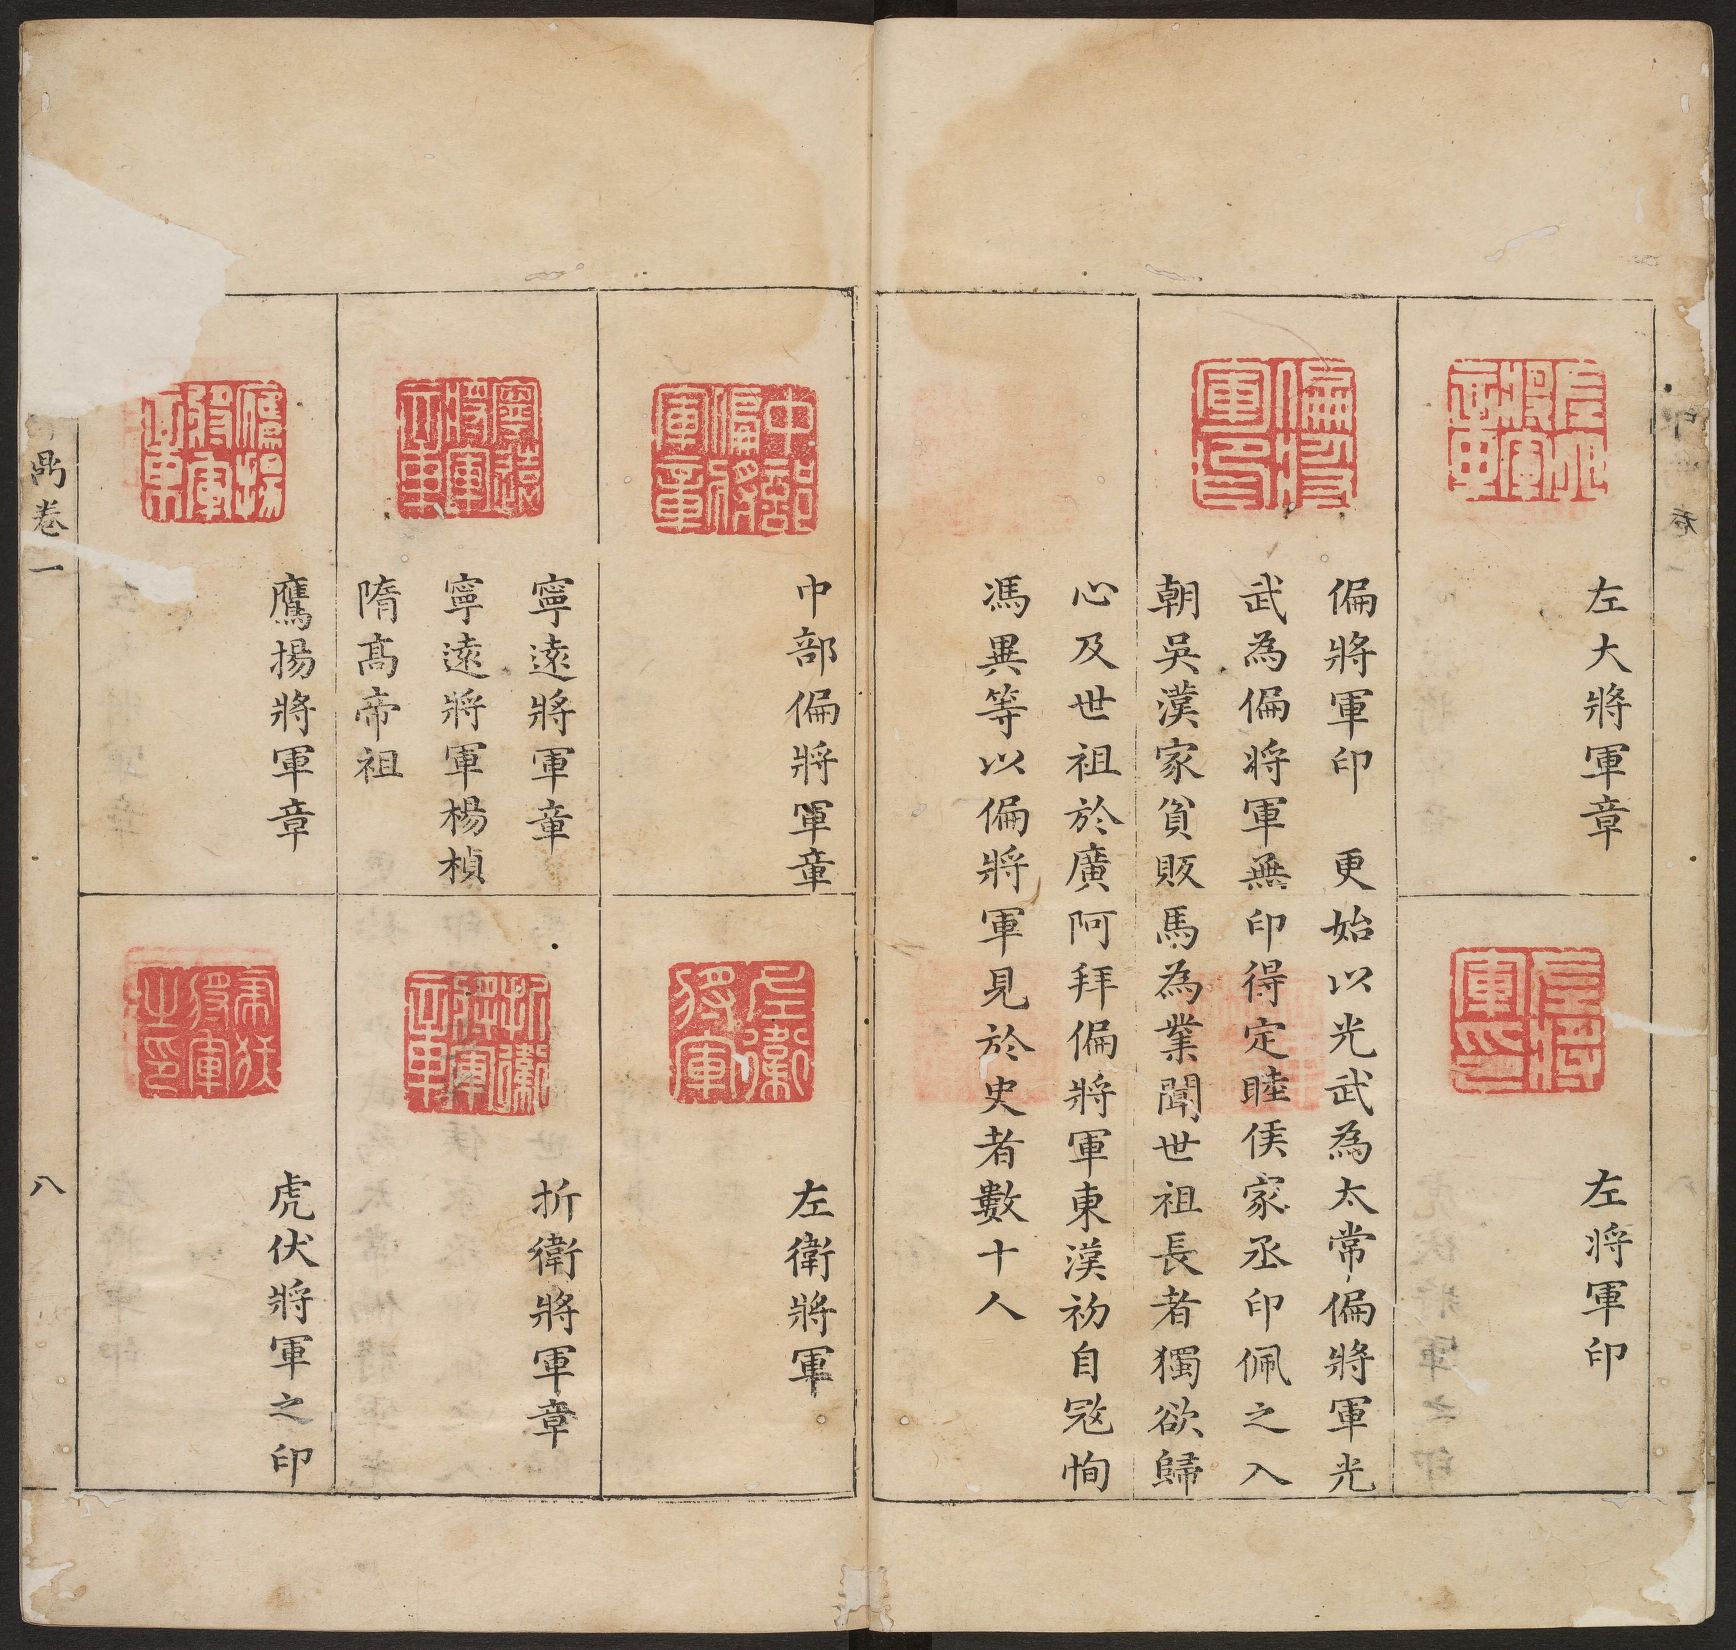 左大將軍章
左將軍印
偏將軍印　更始以光武為太常偏將軍光
武為偏將軍無印得定睦侯家丞印佩之入
朝吳漢家貧販馬為業聞世祖長者獨欲歸
心及世祖於廣阿拜偏將軍東漢初自冦恂
馮異等以偏將軍見於史者數十人
中部偏將軍章
左衛將軍
寧遠將軍章
寧遠將軍楊楨
隋高帝祖
折衝將軍章
鷹揚將軍章
虎伏將軍之印
卷一
八